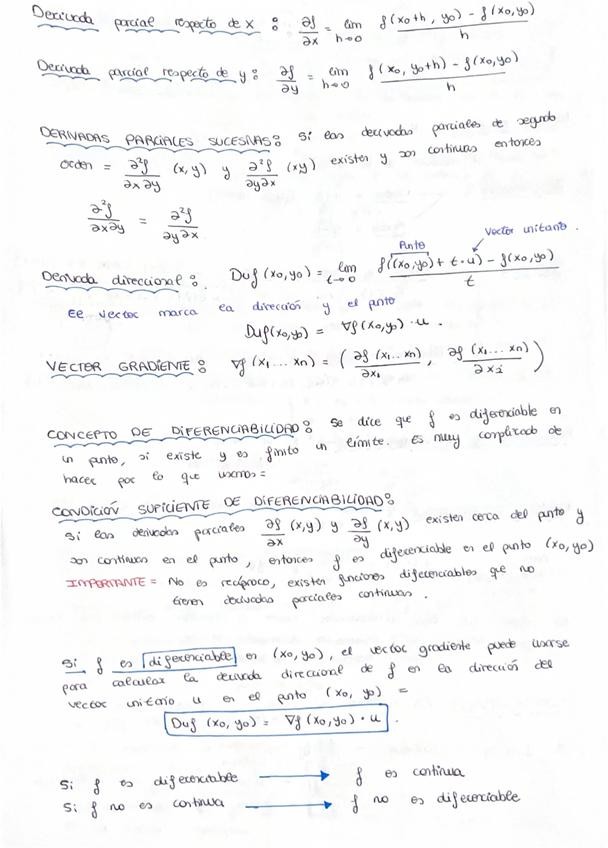 Derivada parcial respecto de x : ∂f/∂x = lim h→0 f(x0+h, y0) - f(x0,y0) / h
Derivada parcial respecto de y : ∂f/∂y = lim h→0 f(x0, y0+h) - f(x0,y0) / h
DERIVADAS PARCIALES SUCESIVAS: Si las derivadas parciales de segundo
orden = ∂²f/∂x∂y (x,y) y ∂²f/∂y∂x (xy) existen y son continuas entonces
∂²f/∂x∂y = ∂²f/∂y∂x
Punto Vector unitario.
Derivada direccional: Duf (x0,y0) = lim t→0 f((x0,y0) + t·u) - f(x0,y0) / t
El vector marca la dirección y el punto
Duf(x0,y0) = ∇f(x0,y0)·u.
VECTER GRADIENTE: ∇f (x1...xn) = (∂f (x1...xn)/∂x1, ∂f (x1...xn)/∂xi)
CONCEPTO DE DIFERENCIABILIDAD: Se dice que f es diferenciable en
un punto, si existe y es finito un límite. Es muy complicado de
hacer por lo que usamos =
CONDICIÓN SUFICIENTE DE DIFERENCIABILIDAD:
Si las derivadas parciales ∂f/∂x (x,y) y ∂f/∂y (x,y) existen cerca del punto y
son continuas en el punto, entonces f es diferenciable en el punto (x0,y0)
IMPORTANTE = No es recíproco, existen funciones diferenciables que no
tienen derivadas parciales continuas.
Si f es diferenciable en (x0,y0), el vector gradiente puede usarse
para calcular la derivada direccional de f en la dirección del
vector unitario u en el punto (x0, y0) =
Duf (x0,y0) = ∇f(x0,y0)·u.
Si f es diferenciable → f es continua
Si f no es continua → f no es diferenciable